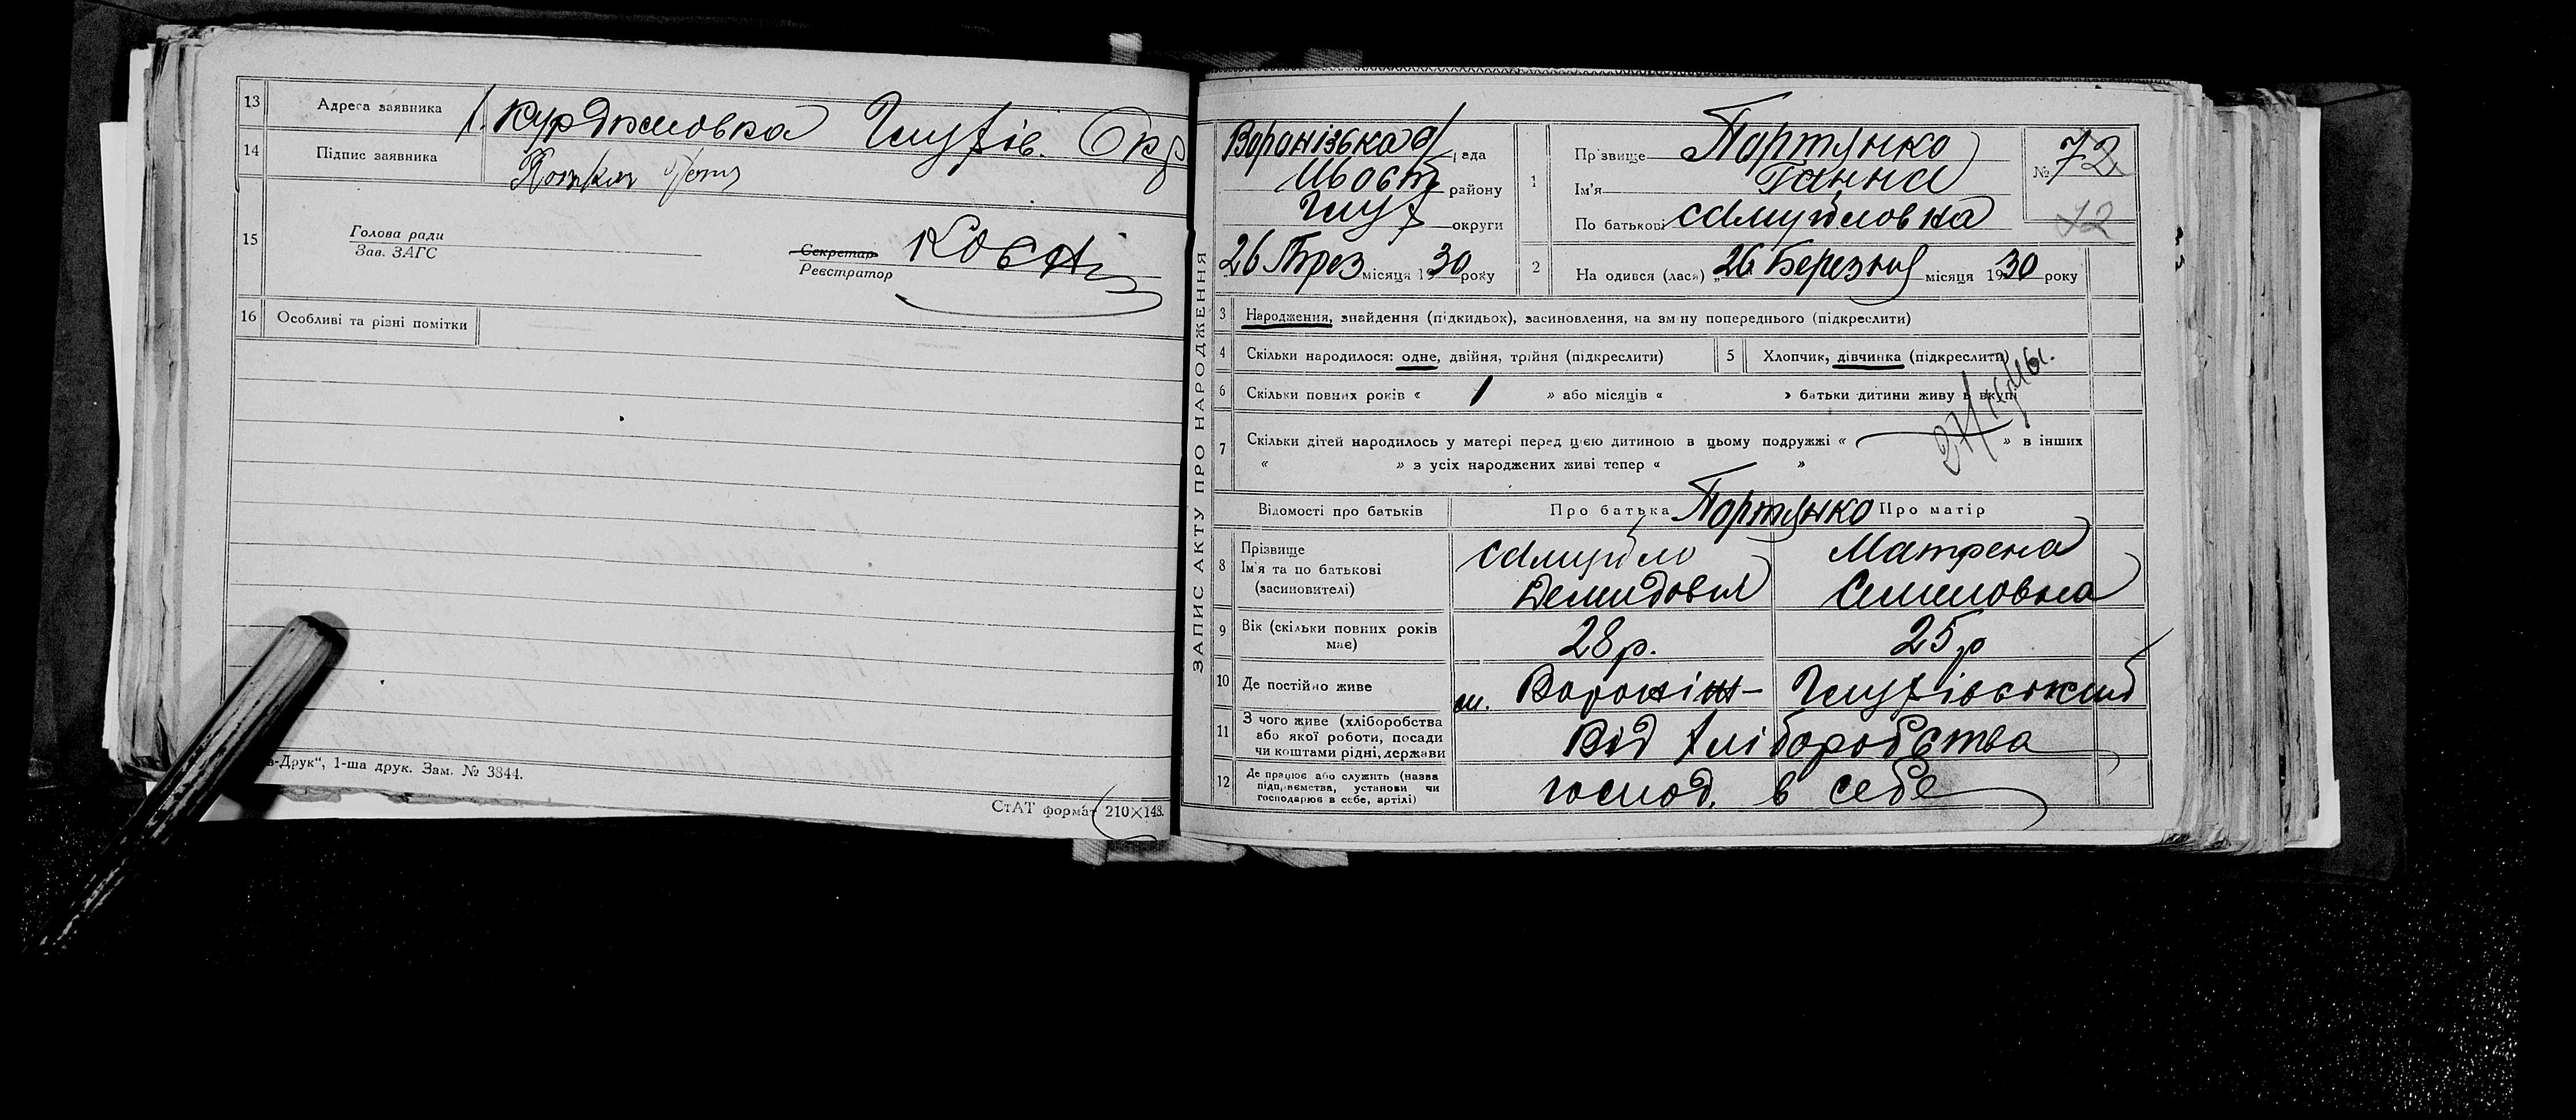 13 Адреса заявника х. Курдюмовка Глухів. Окр
14 Підпис заявника
15 Голова ради
Зав. ЗАГС
Секретар
Реєстратор
16 Особливі та різні помітки
в-Друк", 1-ша друк. Зам. № 3844.
СтАТ формат 210×148.
ЗАПИС АКТУ ПРО НАРОДЖЕННЯ
Воронізька с/рада
району
Глух округи
26 Брез місяця 1930 року
1 Прізвище Портянко
Ім'я Ганна
По батькові Самуйловна
№ 72
72
2 Народився (лася) „26 Березня місяця 1930 року
3 Народження, знайдення (підкидьок), засиновлення, на зміну попереднього (підкреслити)
4 Скільки народилося: одне, двійня, трійня (підкреслити)
5 Хлопчик, дівчинка (підкреслити)
6 Скільки повних років « 1 » або місяців « » батьки дитини живуть вкупі
7 Скільки дітей народилось у матері перед цією дитиною в цьому подружжі « — » в інших
« » з усіх народжених живі тепер « »
Відомості про батьків Про батька Портянко Про матір
8 Прізвище
Ім'я та по батькові
(засиновителі)
Самуйло
Демидович
Матрена
Семеновна
9 Вік (скільки повних років
має)
28 р. 25 р
10 Де постійно живе м. Вороніж - Глухівський
11 З чого живе (хліборобства
або якої роботи, посади
чи коштами рідні, держави
Від хліборобства
12 Де працює або служить (назва
підприємства, установи чи
господарює в себе, артілі)
господ. в себе